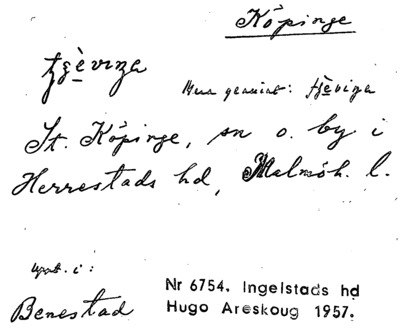 Köpinge
tjèvinza
Mera genuint: tjèvinga
St. Köpinge, sn o. by i
Herrestads hd, Malmöh. l.
uppt. i:
Benestad
Nr 6754. Ingelstads hd
Hugo Areskoug 1957.